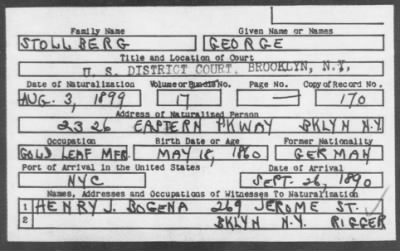 Family Name Given Name or Names
STOLLBERG GEORGE
Title and Location of Court
U. S. DISTRICT COURT, BROOKLYN, N.Y.
Date of Naturalization Volume or Bundle No. Page No. Copy of Record No.
AUG. 3, 1899 17 — 170
Address of Naturalized Person
2326 EASTERN PKWAY BKLYN N.Y.
Occupation Birth Date or Age Former Nationality
GOLD LEAF MFR. MAY 18, 1860 GERMAN
Port of Arrival in the United States Date of Arrival
NYC SEPT. 26, 1890
Names, Addresses and Occupations of Witnesses To Naturalization
1 HENRY J. BOGENA 269 JEROME ST.
2 BKLYN N.Y. RIGGER